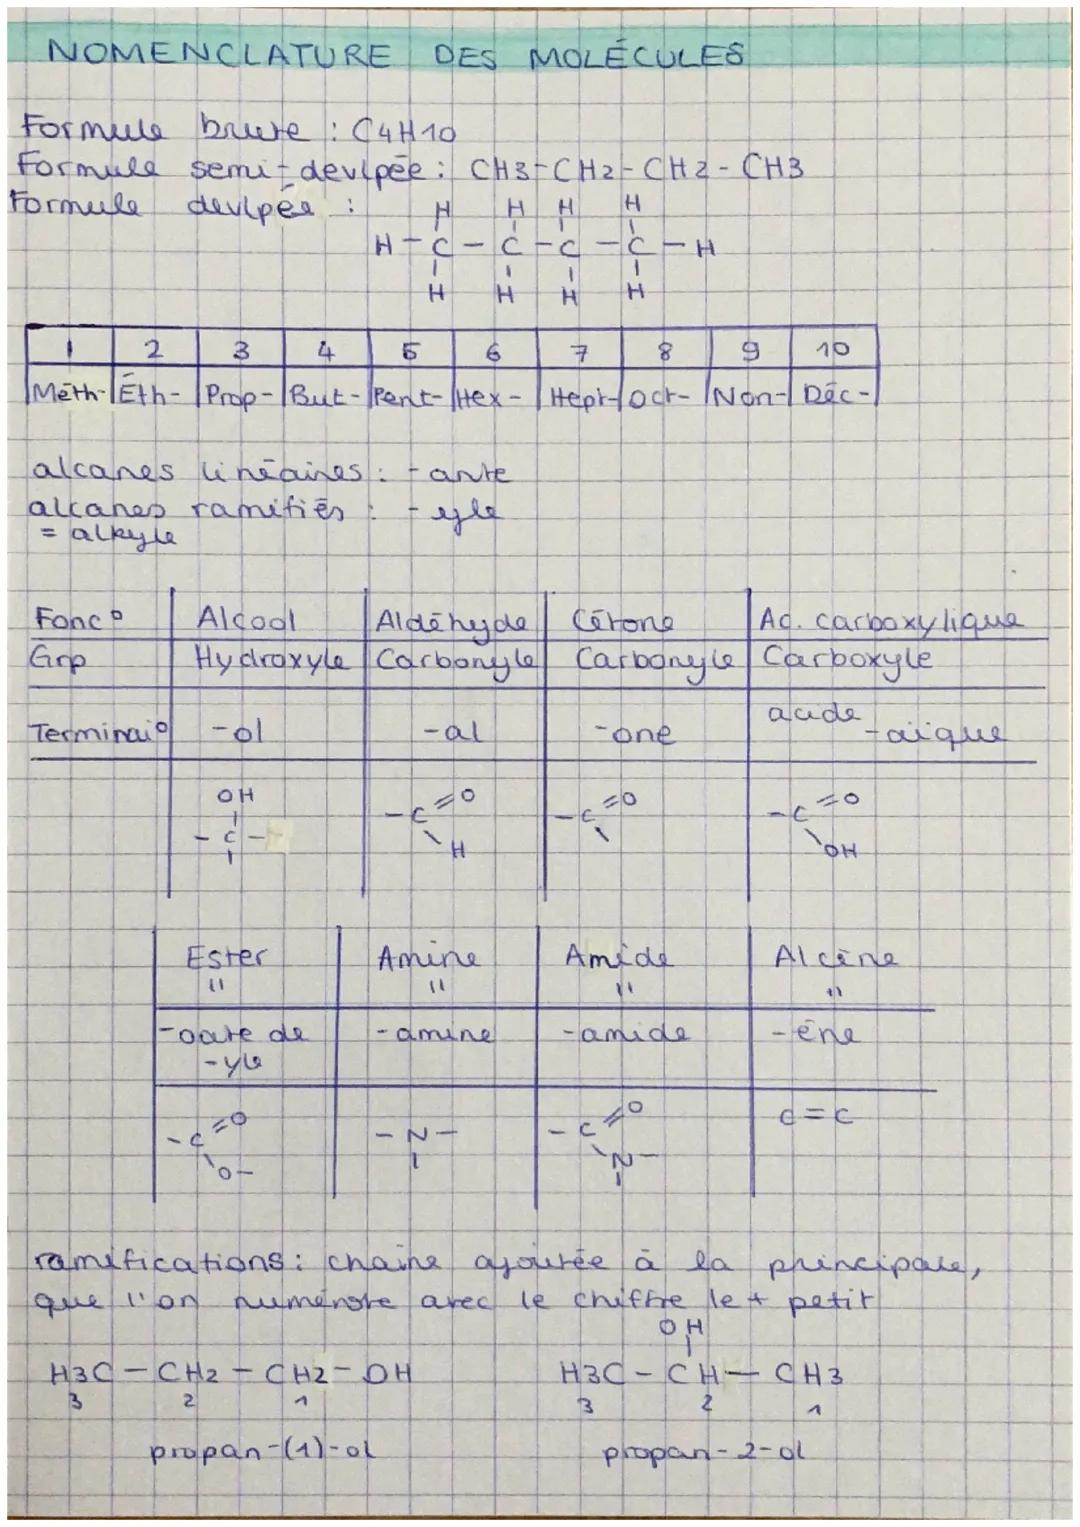 NOMENCLATURE DES MOLÉCULES
Formule brute : C4H10
Formule semi-devlpée : CH3-CH2-CH2-CH3
Formule devlpée :
H H H H
H-C-C-C-C-H
H H H H
1 2 3 4 5 6 7 8 9 10
Méth- Éth- Prop- But- Pent- Hex- Hept- Oct- Non- Déc-
alcanes linéaires : -ante
alcanes ramifiés : -yle
= alkyle
Fonc° Alcool Aldéhyde Cétone Ac. carboxylique
Grp Hydroxyle Carbonyle Carbonyle Carboxyle
Terminai° -ol -al -one acide -oïque
OH
-C- -C=O -C=O -C=O
H OH
Ester Amine Amide Alcène
" " " "
-oate de -amine -amide -ène
-yle
-C=O -N- -C=O C=C
O- N-
ramifications : chaine ajoutée à la principale,
que l'on numérote avec le chiffre le + petit
OH
H3C-CH2-CH2-OH H3C-CH-CH3
3 2 1 3 2 1
propan-(1)-ol propan-2-ol